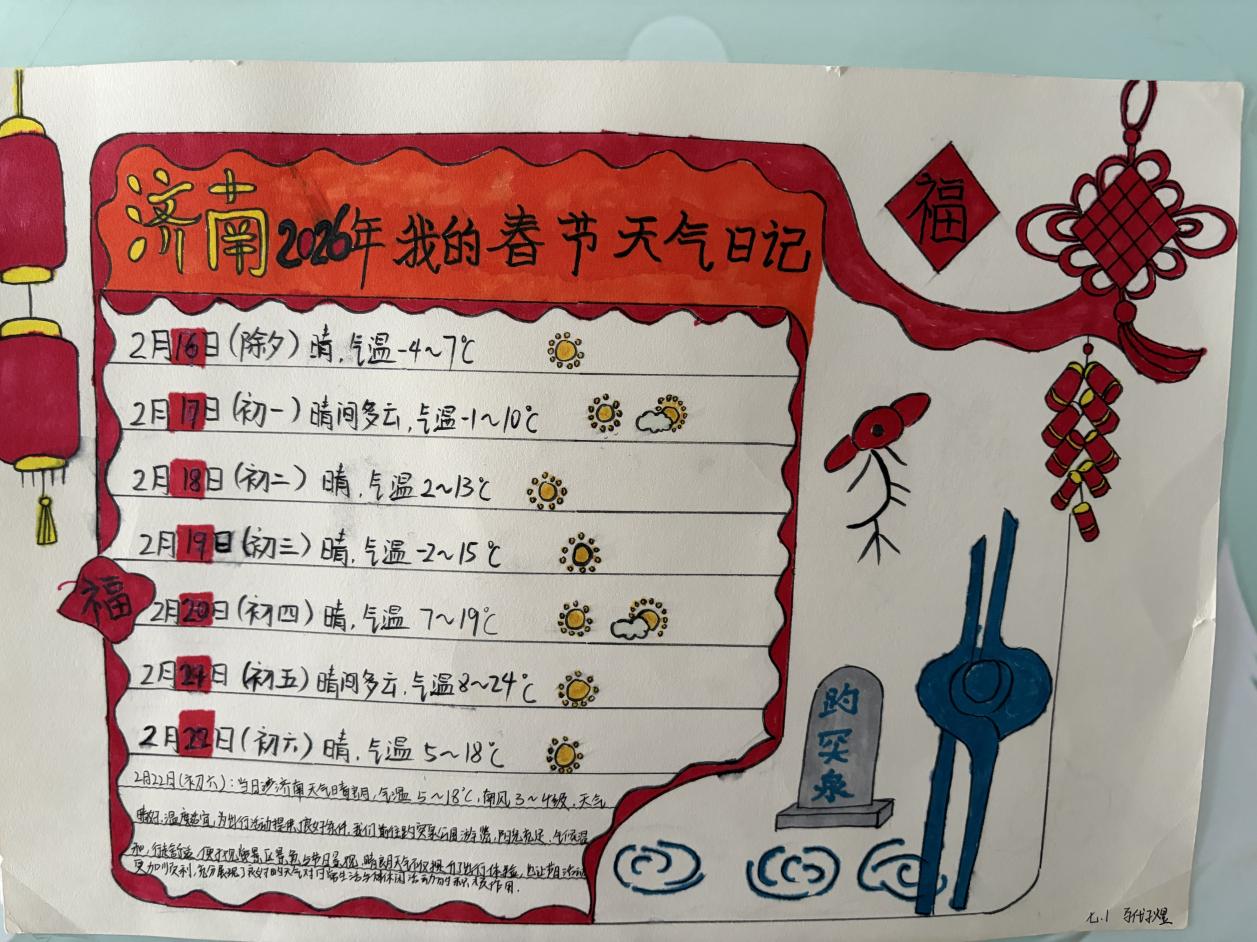 济南2026年我的春节天气日记
福
2月16日(除夕)晴,气温-4~7℃
2月17日(初一)晴间多云,气温-1~10℃
2月18日(初二)晴,气温2~13℃
2月19日(初三)晴,气温-2~15℃
福
2月20日(初四)晴,气温7~19℃
2月21日(初五)晴间多云,气温8~24℃
2月22日(初六)晴,气温5~18℃
趵突泉
2月22日(初六):当日济南天气晴朗,气温5~18℃,南风3~4级,天气
晴好,温度适宜,为出行活动提供良好条件。我们前往趵突泉公园游览,阳光充足,气温温
和,行走舒适,便于观赏景区景气与节日景观,晴朗天气不仅提升了出行体验,也让节日活动
更加顺利,充分展现了良好的天气对日常生活与休闲活动的积极作用。
七.1